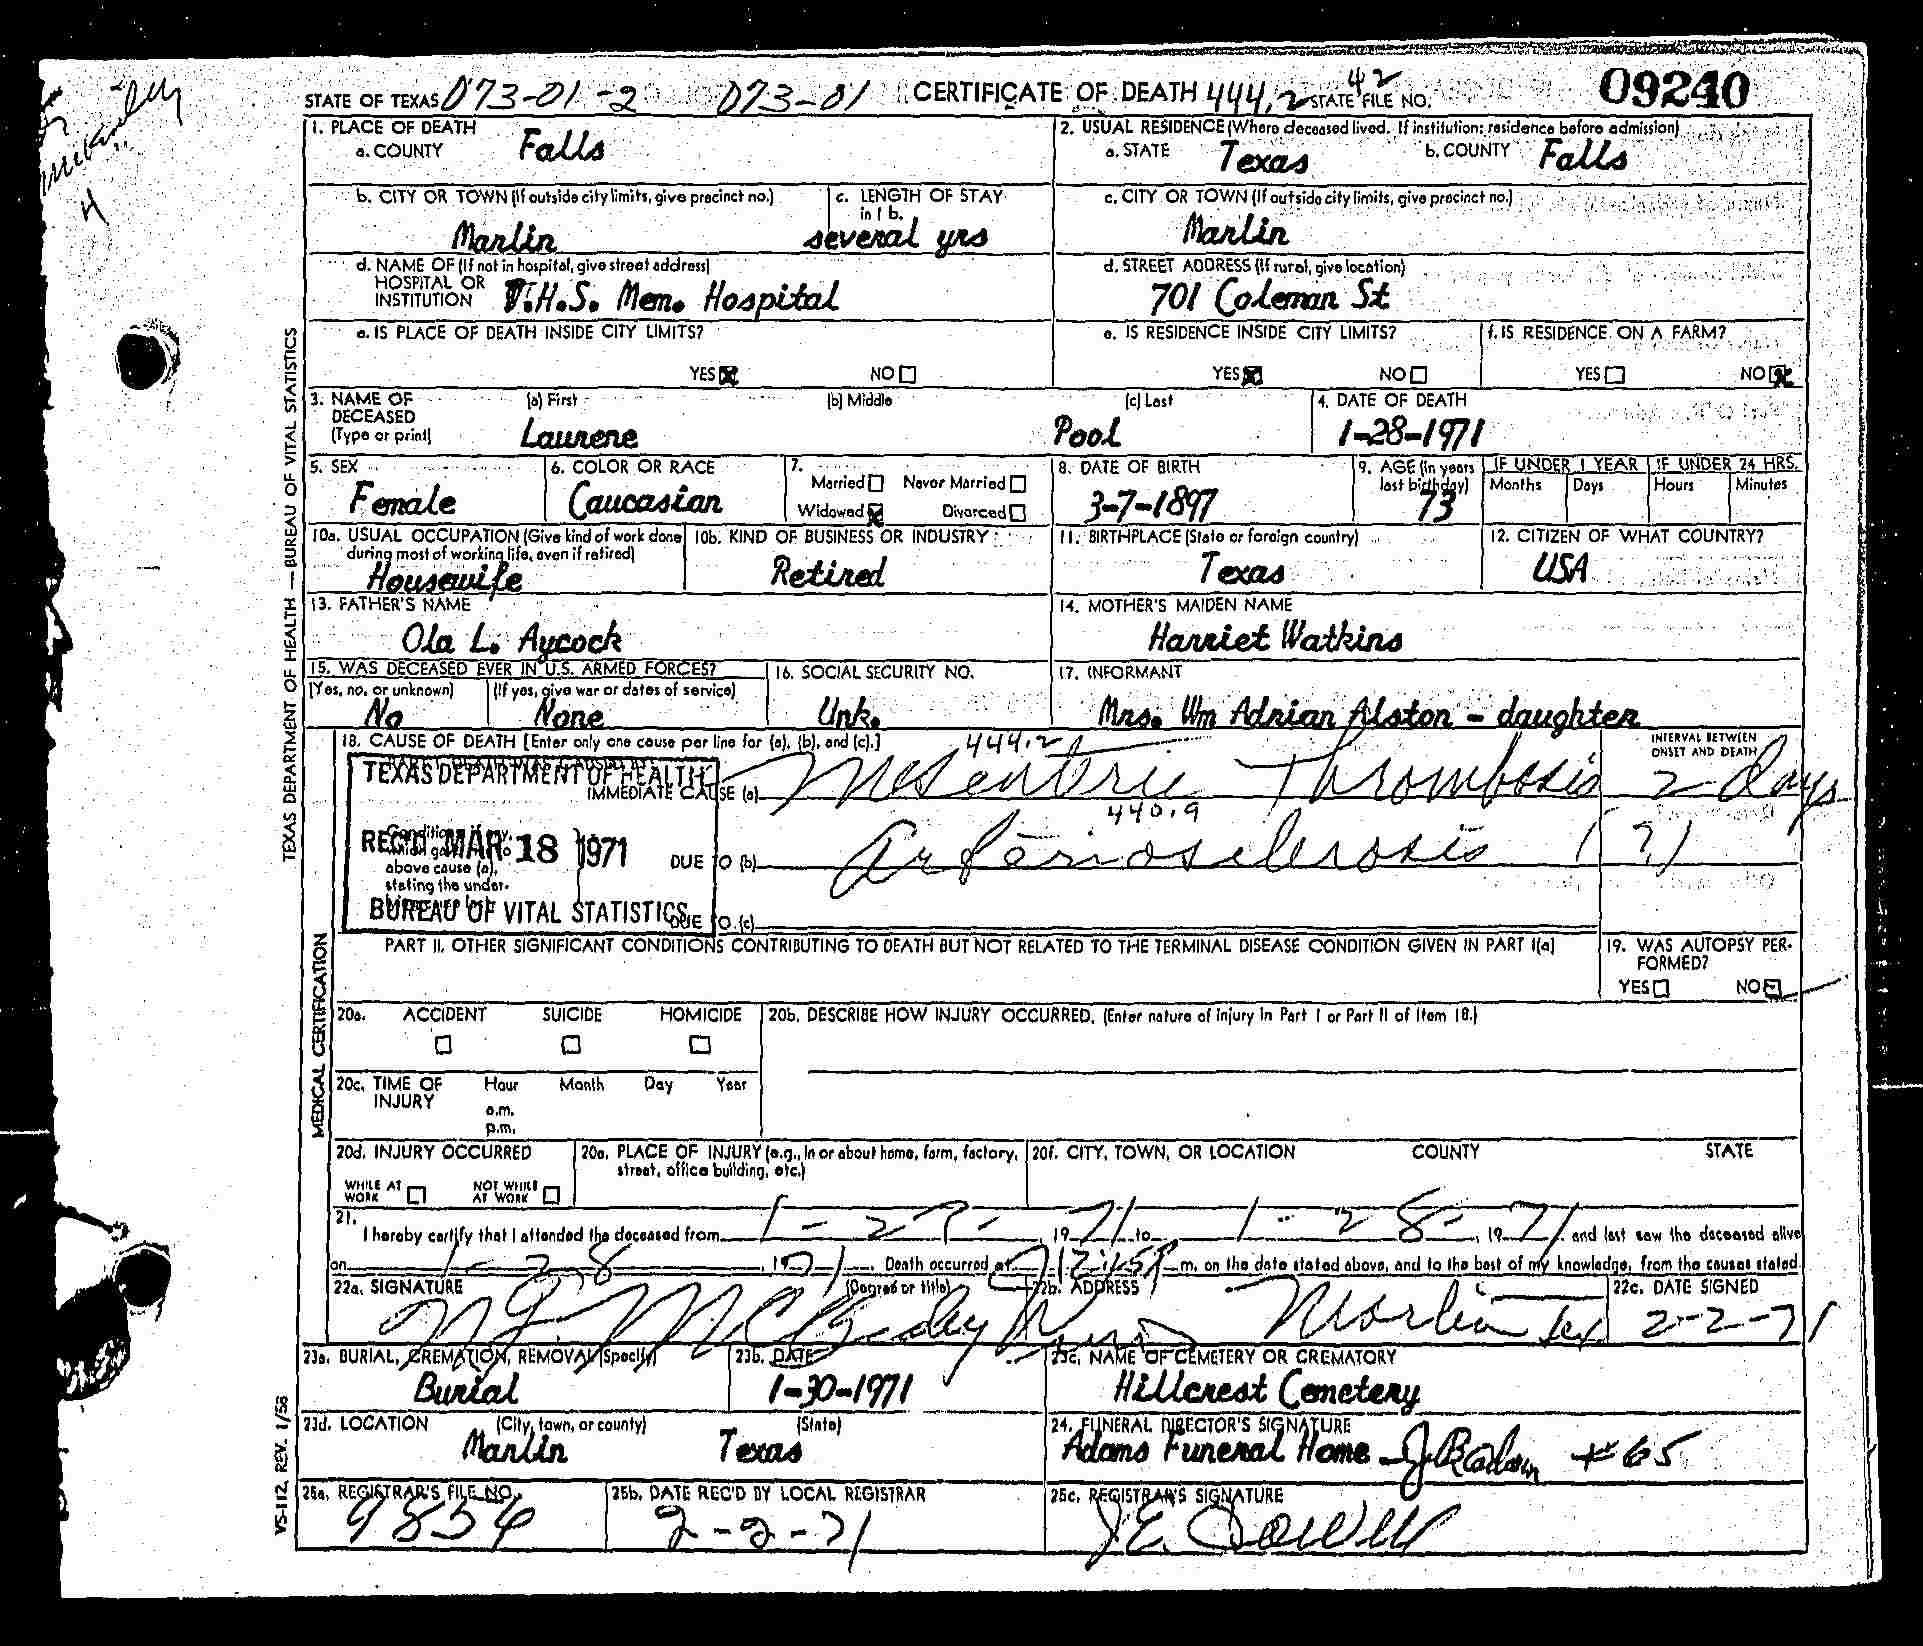 STATE OF TEXAS 073-01-2 073-01 CERTIFICATE OF DEATH 444.2 42 STATE FILE NO. 09240
1. PLACE OF DEATH
a. COUNTY Falls
2. USUAL RESIDENCE (Where deceased lived. If institution: residence before admission)
a. STATE Texas b. COUNTY Falls
b. CITY OR TOWN (If outside city limits, give precinct no.)
Marlin
c. LENGTH OF STAY in 1 b.
several yrs
c. CITY OR TOWN (If outside city limits, give precinct no.)
Marlin
d. NAME OF (If not in hospital, give street address)
HOSPITAL OR
INSTITUTION T.H.S. Mem. Hospital
d. STREET ADDRESS (If rural, give location)
701 Coleman St
e. IS PLACE OF DEATH INSIDE CITY LIMITS?
YES NO
e. IS RESIDENCE INSIDE CITY LIMITS?
YES NO
f. IS RESIDENCE ON A FARM?
YES NO
3. NAME OF DECEASED (Type or print)
(a) First (b) Middle (c) Last
Laurene Pool
4. DATE OF DEATH
1-28-1971
5. SEX
Female
6. COLOR OR RACE
Caucasian
7.
Married Never Married
Widowed Divorced
8. DATE OF BIRTH
3-7-1897
9. AGE (In years last birthday)
73
IF UNDER 1 YEAR IF UNDER 24 HRS.
Months Days Hours Minutes
10a. USUAL OCCUPATION (Give kind of work done during most of working life, even if retired)
Housewife
10b. KIND OF BUSINESS OR INDUSTRY
Retired
11. BIRTHPLACE (State or foreign country)
Texas
12. CITIZEN OF WHAT COUNTRY?
USA
13. FATHER'S NAME
Ola L. Aycock
14. MOTHER'S MAIDEN NAME
Harriet Watkins
15. WAS DECEASED EVER IN U.S. ARMED FORCES?
(Yes, no, or unknown) (If yes, give war or dates of service)
No None
16. SOCIAL SECURITY NO.
Unk.
17. INFORMANT
Mrs. Wm Adrian Alston - daughter
18. CAUSE OF DEATH [Enter only one cause per line for (a), (b), and (c).]
444.2
INTERVAL BETWEEN ONSET AND DEATH
IMMEDIATE CAUSE (a) Mesenteric Thrombosis 2 days
440.9
DUE TO (b) Arteriosclerosis (?)
above cause (a),
stating the under-
DUE TO (c)
TEXAS DEPARTMENT OF HEALTH
REC'D MAR 18 1971
BUREAU OF VITAL STATISTICS
PART II. OTHER SIGNIFICANT CONDITIONS CONTRIBUTING TO DEATH BUT NOT RELATED TO THE TERMINAL DISEASE CONDITION GIVEN IN PART I(a)
19. WAS AUTOPSY PERFORMED?
YES NO
20a. ACCIDENT SUICIDE HOMICIDE
20b. DESCRIBE HOW INJURY OCCURRED. (Enter nature of injury in Part I or Part II of Item 18.)
20c. TIME OF INJURY
Hour Month Day Year
a.m.
p.m.
20d. INJURY OCCURRED
WHILE AT WORK NOT WHILE AT WORK
20e. PLACE OF INJURY (e.g., in or about home, farm, factory, street, office building, etc.)
20f. CITY, TOWN, OR LOCATION COUNTY STATE
21.
I hereby certify that I attended the deceased from 1-27-, 1971 to 1-28-, 1971 and last saw the deceased alive
on 1-28, 1971. Death occurred at m, on the date stated above, and to the best of my knowledge, from the causes stated.
22a. SIGNATURE (Degree or title)
22b. ADDRESS
Marlin Tex
22c. DATE SIGNED
2-2-71
23a. BURIAL, CREMATION, REMOVAL (Specify)
Burial
23b. DATE
1-30-1971
23c. NAME OF CEMETERY OR CREMATORY
Hillcrest Cemetery
23d. LOCATION (City, town, or county) (State)
Marlin Texas
24. FUNERAL DIRECTOR'S SIGNATURE
Adams Funeral Home # 65
25a. REGISTRAR'S FILE NO.
25b. DATE REC'D BY LOCAL REGISTRAR
2-2-71
25c. REGISTRAR'S SIGNATURE
TEXAS DEPARTMENT OF HEALTH — BUREAU OF VITAL STATISTICS
MEDICAL CERTIFICATION
VS-112 REV. 1/58